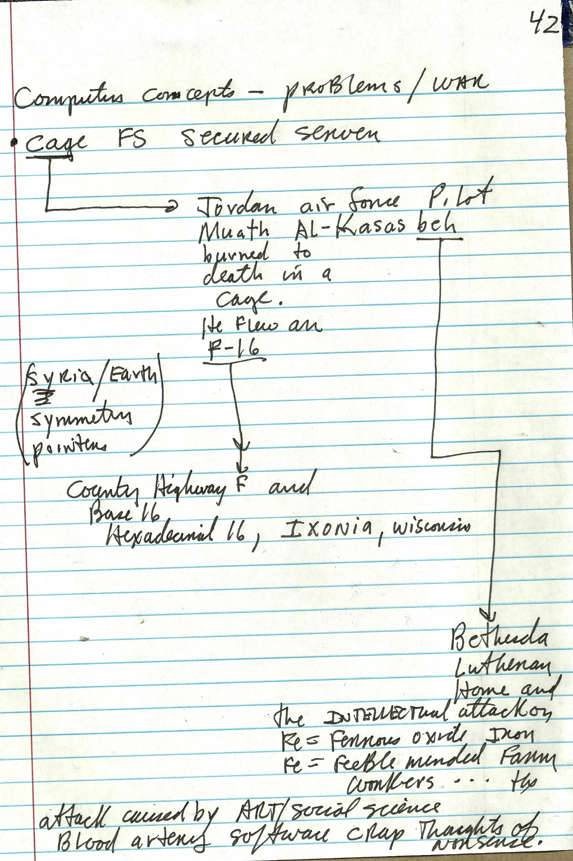 42
Computers concepts - PROBlems/WAR
• Cage FS secured server
Jordan air force Pilot
Muath AL-Kasasbeh
burned to
death in a
Cage.
He Flew an
F-16
Syria/Earth
symmetry
pointers
County Highway F and
Base 16
Hexadecimal 16, IXONIA, wisconsin
Bethesda
Lutheran
Home and
the INTELLECTUAL attack on
Fe = Ferrous oxide Iron
Fe = Feeble minded Farm
workers ... the
attack caused by ART/social science
Blood artery software CRAP Thoughts of
nonsense.